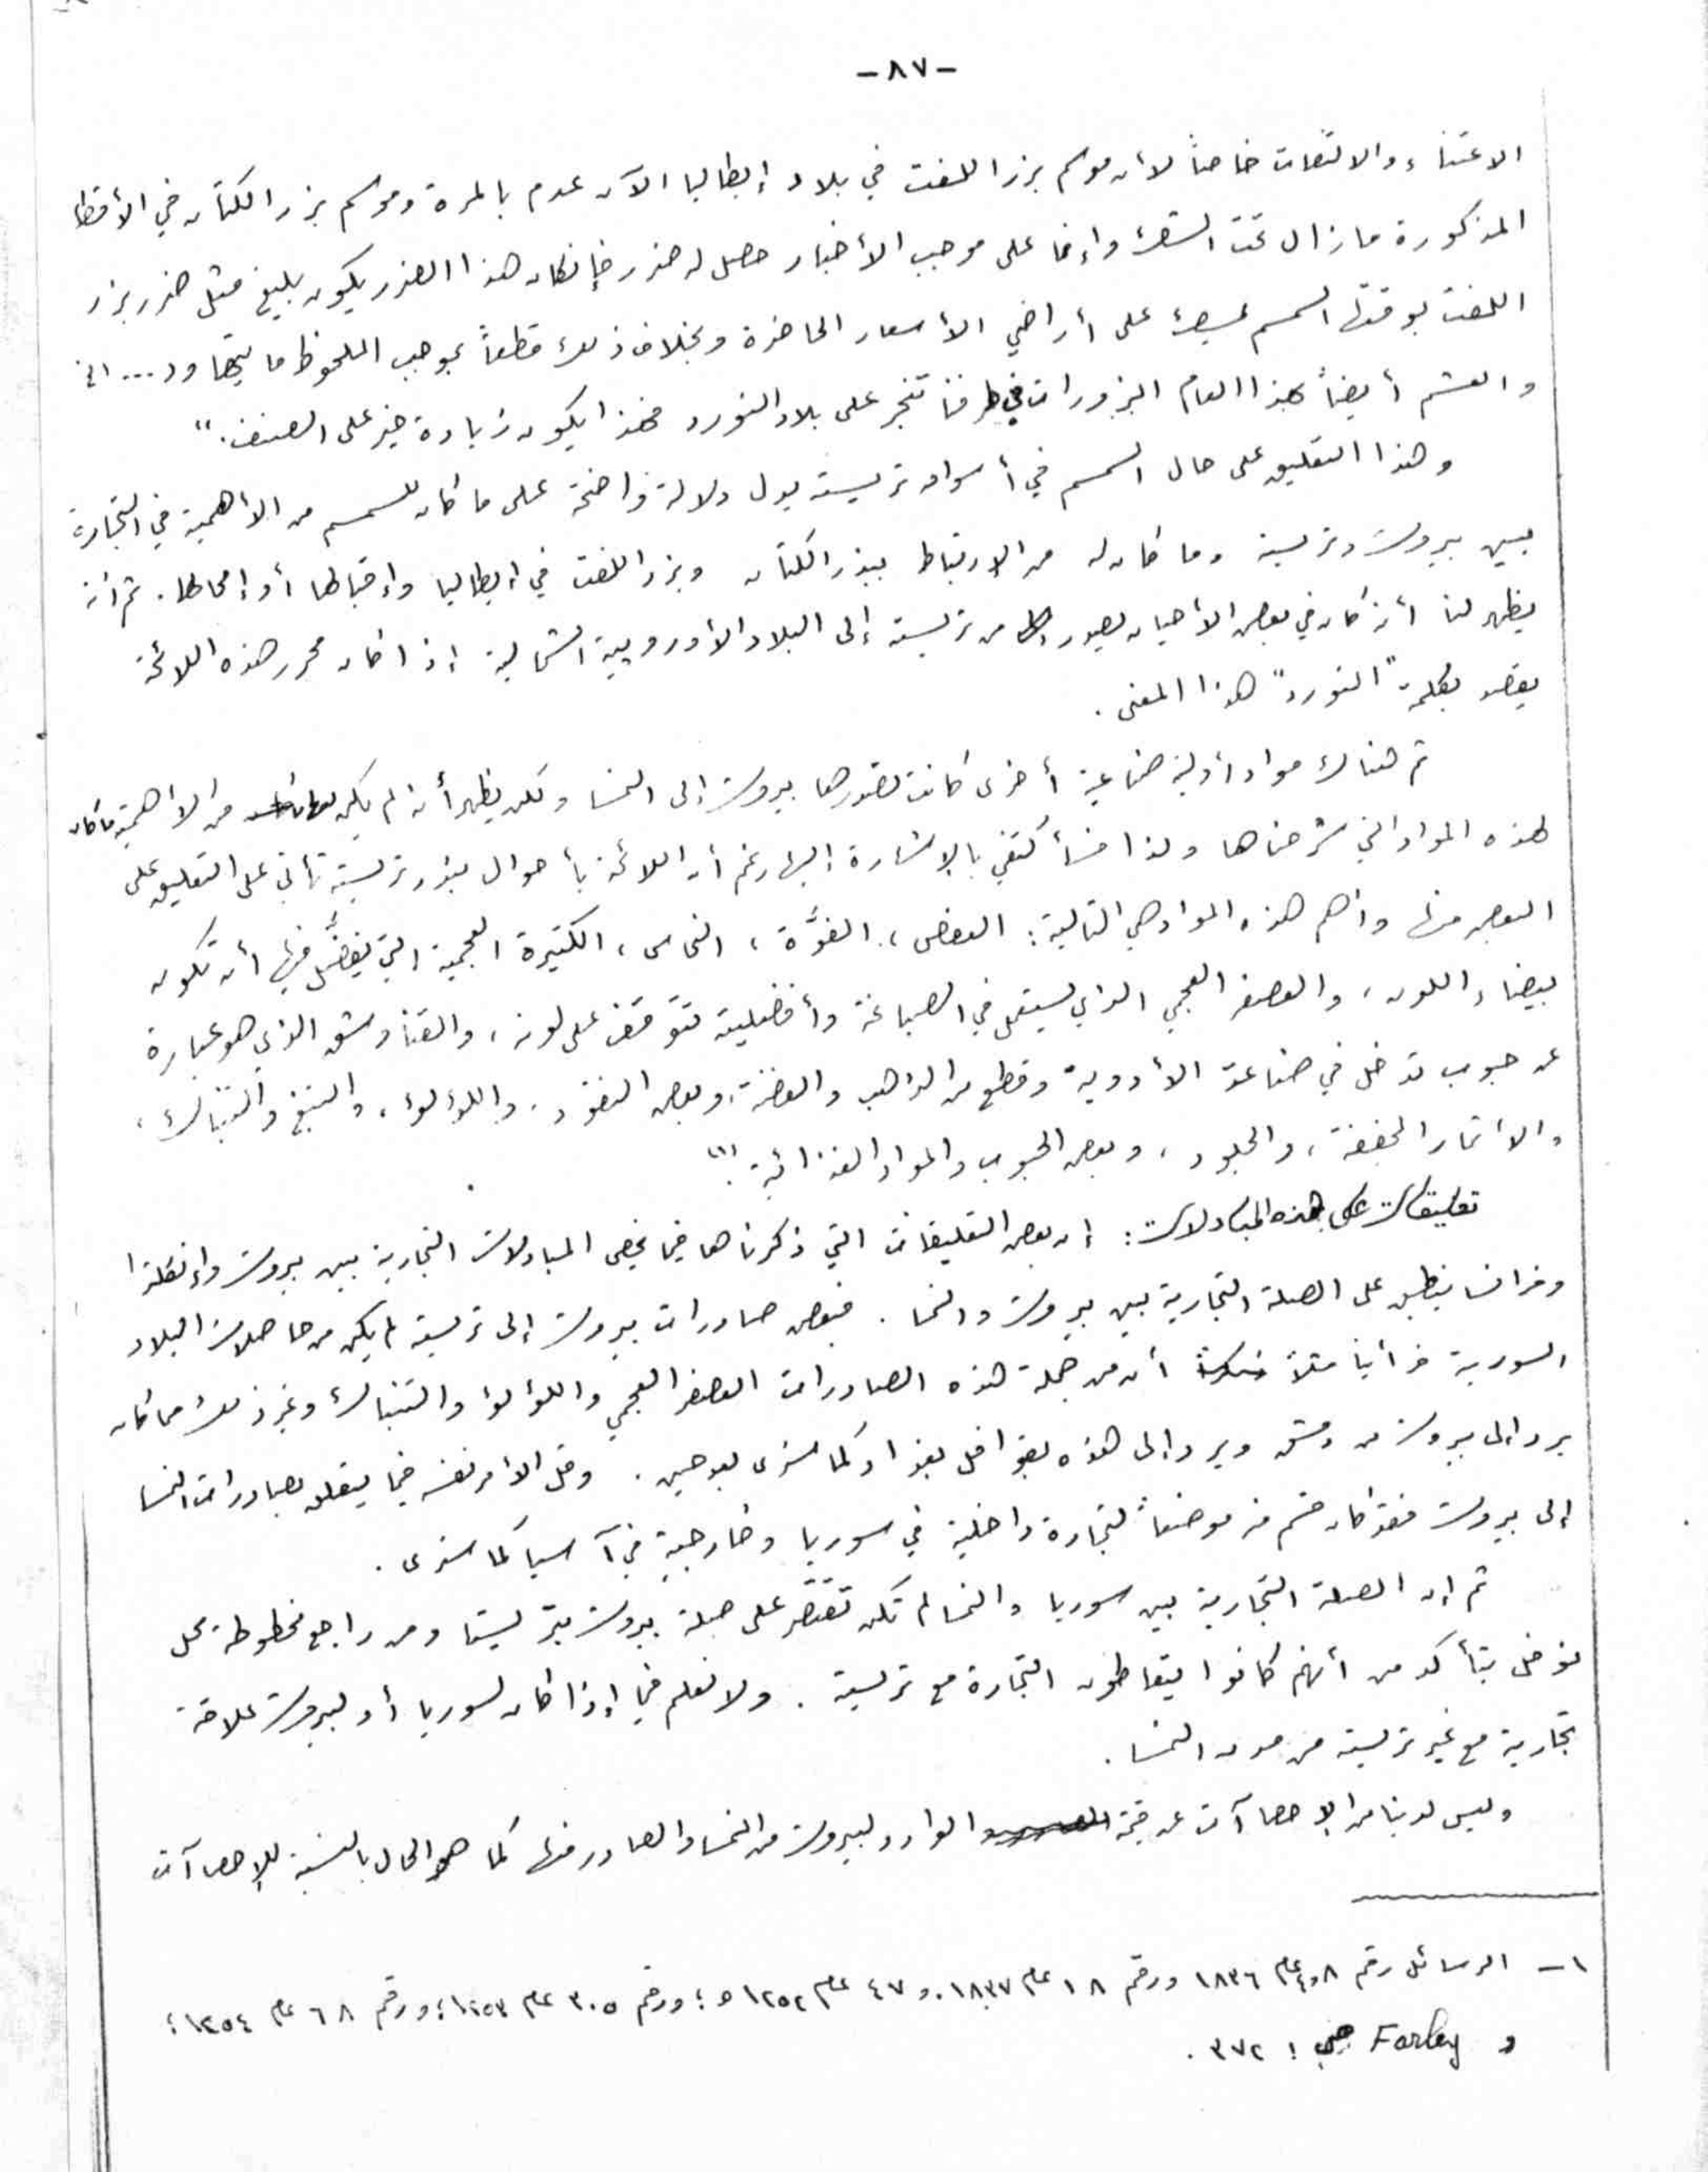 -٨٧-
الاعتناء والالتفات خاصةً لأن موسم بزر اللفت في بلاد إيطاليا الآن عدم بالمرة وموسم بزر الكتان في الأقطا
المذكورة ما زال تحت الشك وإنما على موجب الأخبار حصل له ضرر فإن كان هذا الضرر يكون بليغ مثل ضرر بزر
اللفت بوقتها السمسم على أراضي الأسعار الحاضرة وبخلاف ذلك قطعاً بموجب الملحوظ ما يتهاود ... الخ
والعشم أيضاً بهذا العام البزورات في طرفنا تنجر على بلاد النورد فهذا يكون زيادة خير على الصنف."
وهذا التعليق على حال السمسم في أسواق تريسته يدل دلالة واضحة على ما كان للسمسم من الأهمية في التجارة
بين بيروت وتريسته وما كان له من الارتباط ببزر الكتان وبزر اللفت في إيطاليا وإقبالها أو إمحالها. ثم أنه
يظهر لنا أنه كان في بعض الأحيان يصدر من تريسته إلى البلاد الأوروبية الشمالية إذا كان محرر هذه اللائحة
يقصد بكلمة "النورد" هذا المعنى.
ثم هناك مواد أولية صناعية أخرى كانت تصدرها بيروت إلى النمسا ولكن يظهر أنه لم يكن من الأهمية ما كان
لهذه المواد التي شرحناها ولذا سأكتفي بالإشارة إليها رغم أن اللائحة بأحوال بندر تريسته تأتي على التعليق على
البعض منها وأهم هذه المواد هي التالية: العفص، الفوَّة، النحاس، الكتيرة العجمية التي يفضَّل فيها أن تكون
بيضاء اللون، والعصفر العجمي الذي يستعمل في الصباغة وأفضليته تتوقف على لونه، والقناوشق الذي هو عبارة
عن حبوب تدخل في صناعة الأدوية وقطع من الذهب والفضة، وبعض النقود، واللؤلؤ، والتبغ والتنباك،
والأثمار المجففة، والجلود، وبعض الحبوب والمواد الغذائية.(١)
تعليقات على هذه المبادلات: إن بعض التعليقات التي ذكرناها فيما يخص المبادلات التجارية بين بيروت وإنكلترا
وفرانسا ينطبق على الصلة التجارية بين بيروت والنمسا. فبعض صادرات بيروت إلى تريسته لم يكن من حاصلات البلاد
السورية فرأينا مثلاً أن من جملة هذه الصادرات العصفر العجمي واللؤلؤ والتنباك وغير ذلك مما كان
يرد إلى بيروت من دمشق ويرد إلى هذه بقوافل بغداد كما سنرى بعد حين. وقل الأمر نفسه فيما يتعلق بصادرات النمسا
إلى بيروت فقد كان قسم منه موضعاً لتجارة داخلية في سوريا وخارجية في آسيا كما سنرى.
ثم إن الصلة التجارية بين سوريا والنمسا لم تكن تقتصر على صلة بيروت بتريستا ومن راجع مخطوطة محل
نوفل يتأكد من أنهم كانوا يتعاطون التجارة مع تريسته. ولا نعلم فيما إذا كان لسوريا أو لبيروت علاقة
تجارية مع غير تريسته من مدن النمسا.
وليس لدينا من الإحصاآت عن قيمة الوارد لبيروت من النمسا والصادر منها كما هو الحال بالنسبة للإحصاآت
١- الرسائل رقم ٤٠٨ عام ١٨٣٦ ورقم ١٨ عام ١٨٣٧، و ٤٧ عام ١٢٥٢ ه؛ ورقم ٣٠٥ عام ١٢٥٣؛ ورقم ٦٨ عام ١٢٥٤؛
و Farley ص: ٣٧٢.